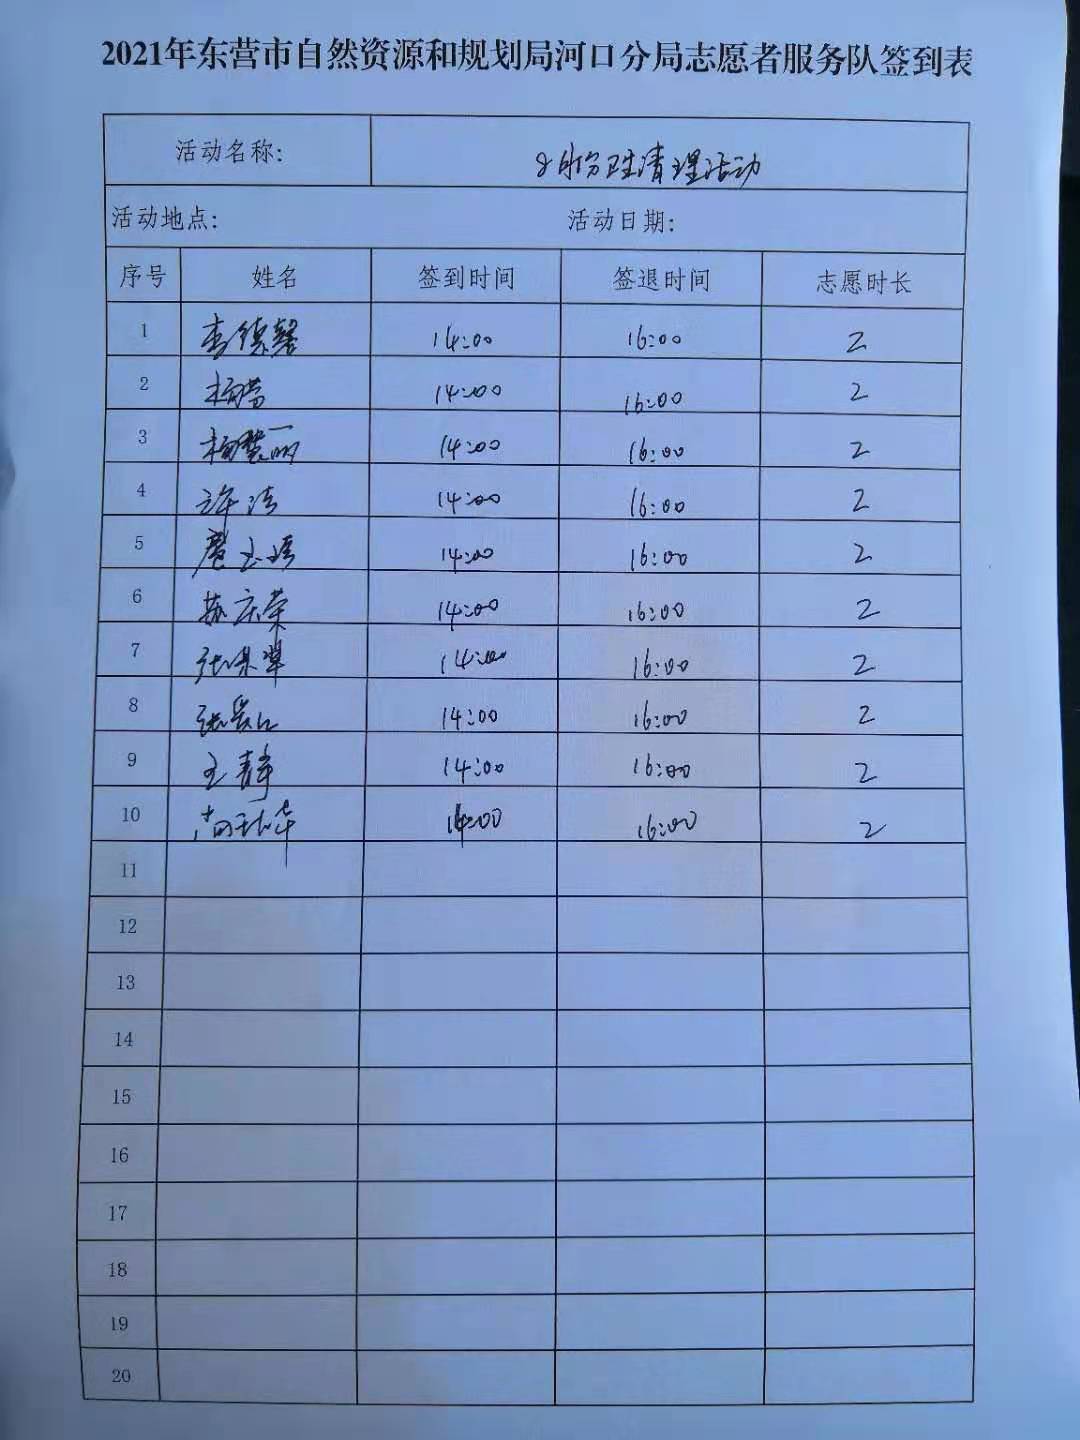 2021年东营市自然资源和规划局河口分局志愿者服务队签到表
活动名称: 月份卫生清理活动
活动地点: 活动日期:
序号 姓名 签到时间 签退时间 志愿时长
1 李德馨 14:00 16:00 2
2 杨 14:00 16:00 2
3 杨慧丽 14:00 16:00 2
4 许洁 14:00 16:00 2
5 14:00 16:00 2
6 苏庆荣 14:00 16:00 2
7 张翠 14:00 16:00 2
8 张 14:00 16:00 2
9 王静 14:00 16:00 2
10 14:00 16:00 2
11
12
13
14
15
16
17
18
19
20